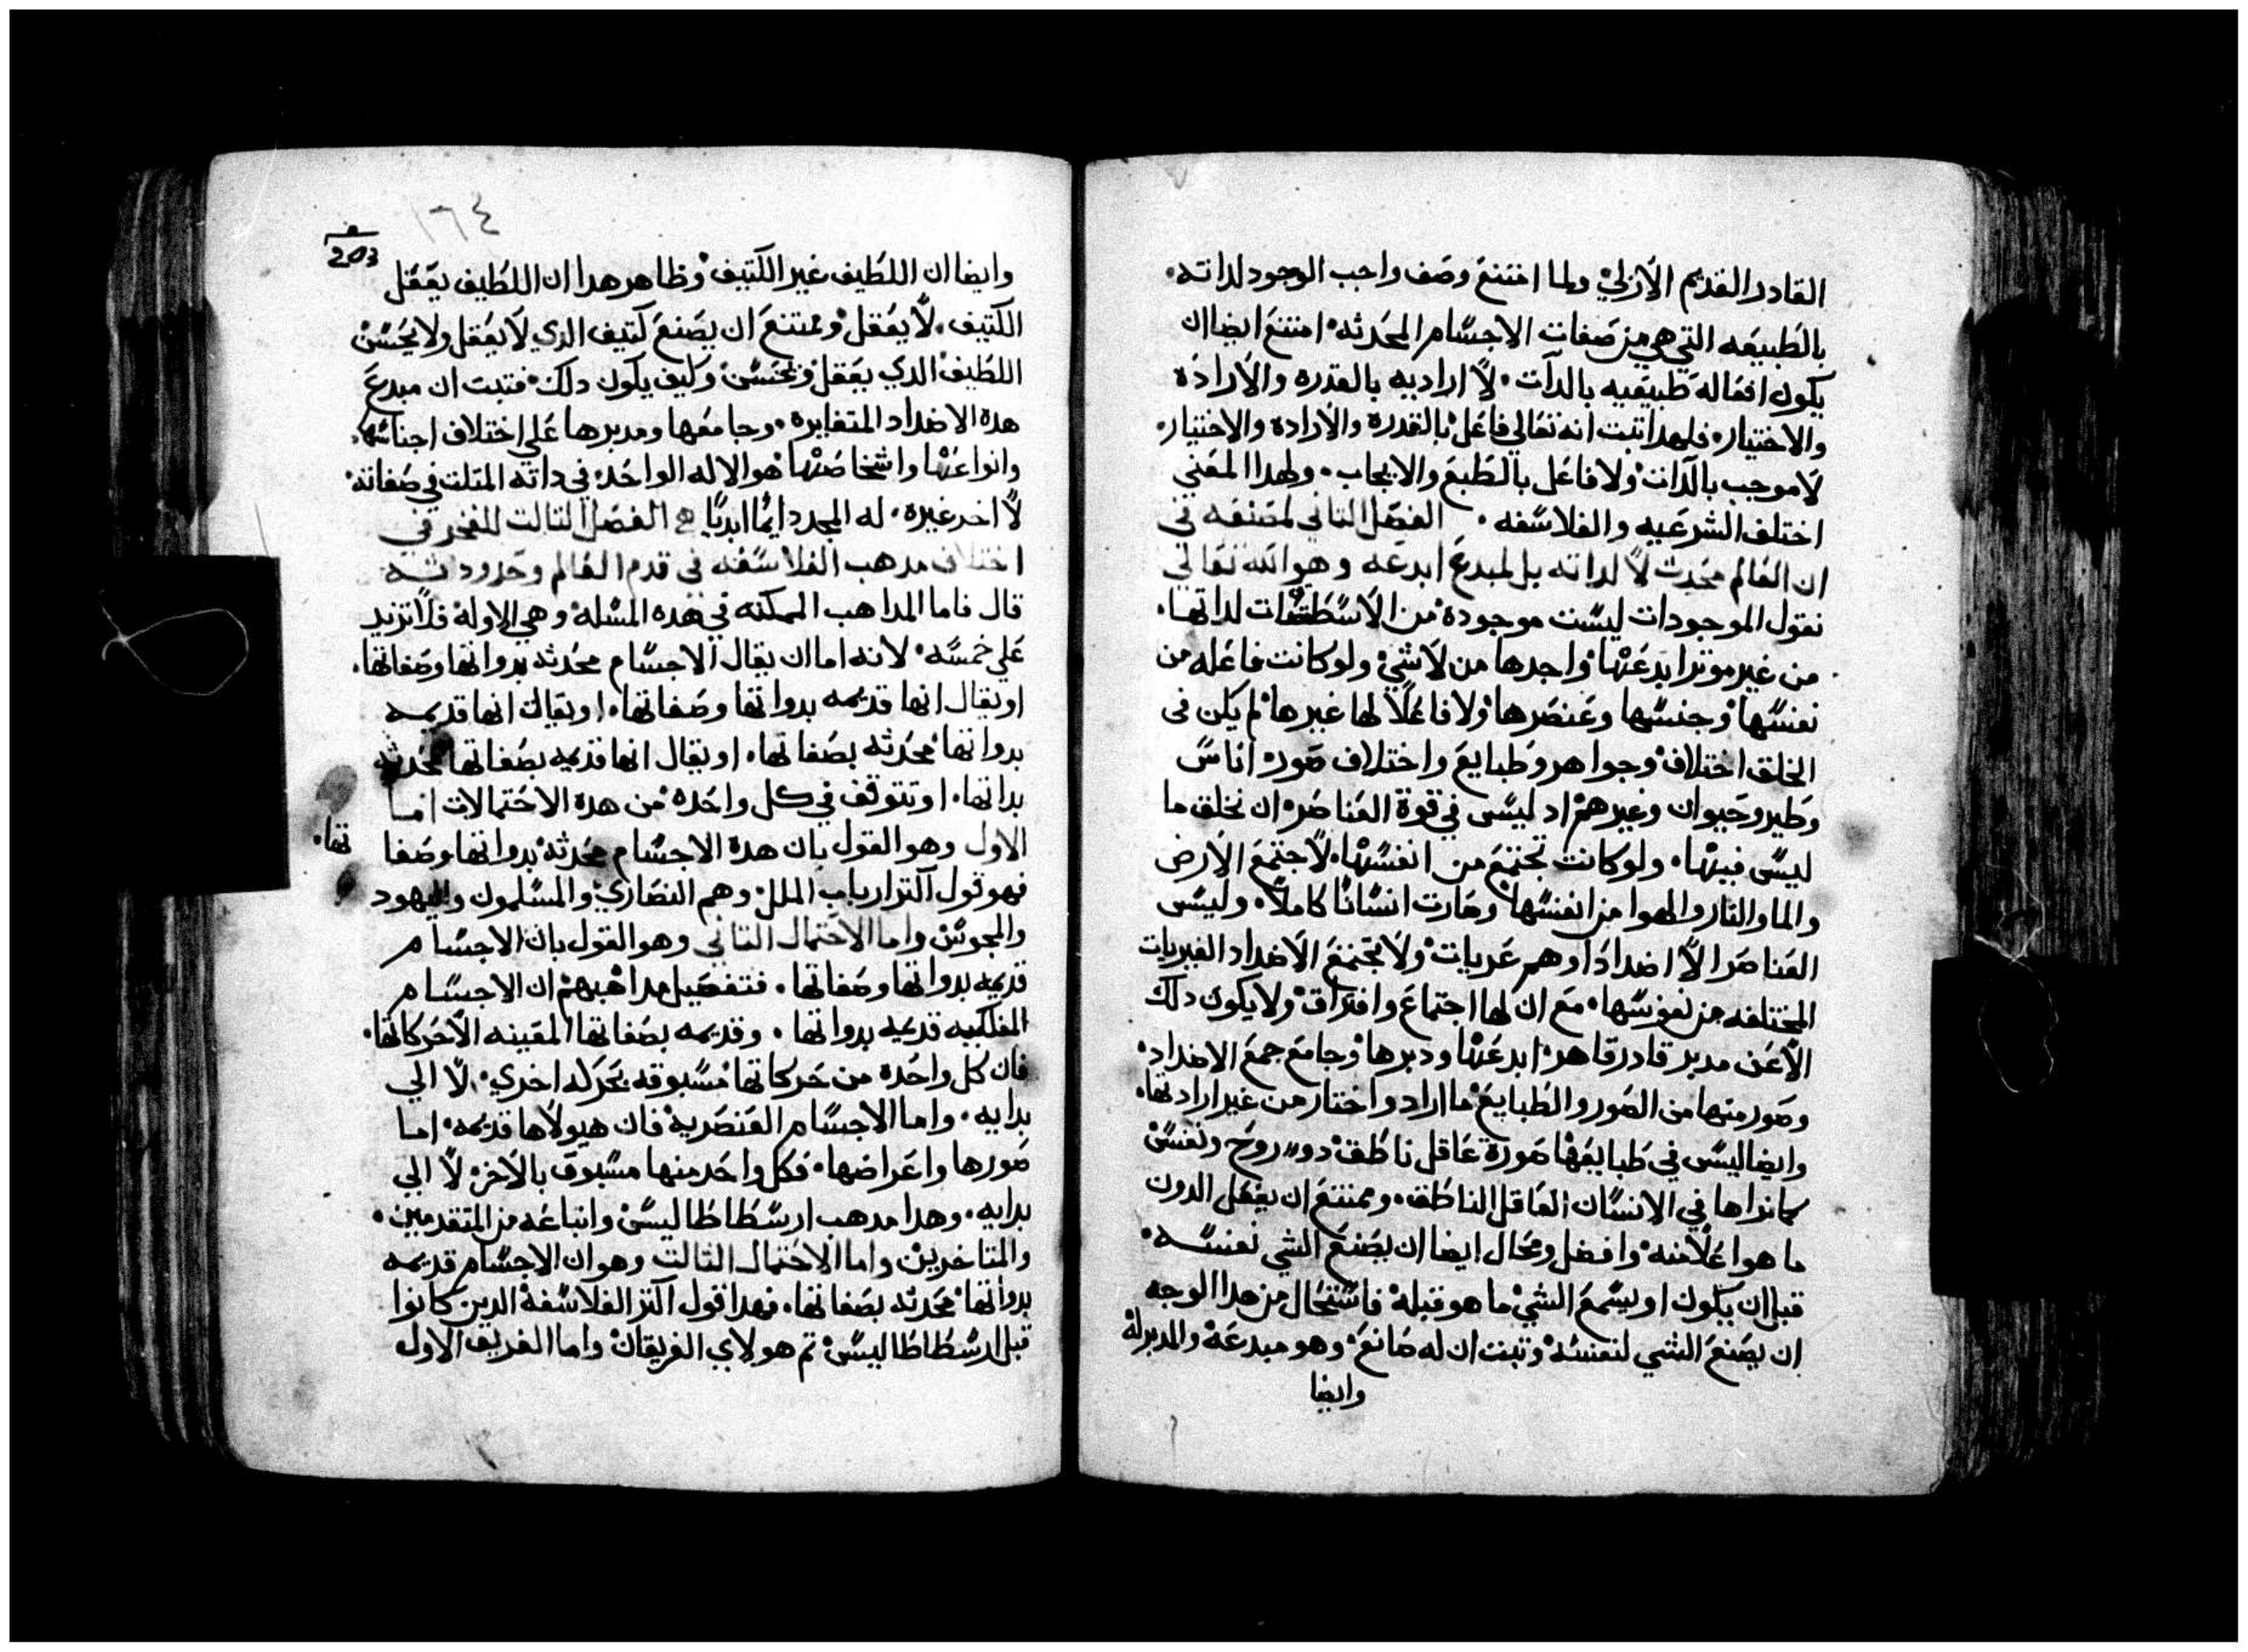 القادر القديم الازلي ولما امتنع وصف واجب الوجود لداته
بالطبيعه التي هي من صفات الاجسام المحدثه امتنع ايضا ان
يكون افعاله طبيعيه بالدات لا اراديه بالقدره والاراده
والاختيار فلهدا تبت انه تعالي فاعل بالقدره والاراده والاختيار
لا موجب بالدات ولا فاعل بالطبع والايجاب ولهدا المعني
اختلف الشرعيه والفلاسفه الفصل التاني لمصنفه في
ان العالم محدث لا لداته بل لمبدع ابدعه وهو الله تعالي
نقول الموجودات ليست موجودة من الاسطقتات لداتها
من غير موتر ابدعتها واجدها من لا شي ولو كانت فاعله من
نفسها وجنسها وعنصرها ولا فاعلا لها غيرها لم يكن في
الخلق اختلاف وجواهر وطبايع واختلاف صور اناس
وطير وحيوان وغيرهم اد ليس في قوة العناصر ان نخلق ما
ليس فيها ولو كانت تجتمع من انفسها لاجتمع الارض
والما والنار والهوا من انفسها وصارت انسانا كاملا وليس
العناصر الا اضدادا وهم عريات ولا يجتمع الاضداد الغيريات
المختلفه من نفوسها مع ان لها اجتماع وافتراق ولا يكون دلك
الا عن مدبر قادر قاهر ابدعتها ودبرها وجامع جمع الاضداد
وصور منها من الصور والطبايع ما اراد واختار من غير ارادتها
وايضا ليس في طبايعها صورة عاقل ناطق دو روح ونفس
كما نراها في الانسان العاقل الناطق وممتنع ان يفعل الدون
ما هوا علا منه وافضل ومحال ايضا ان يصنع الشي نفسه
قبل ان يكون او يسمع الشي ما هو قبله فاستحال من هدا الوجه
ان يصنع الشي لنفسه وتبت ان له صانع وهو مبدعه والمدبر له
وايضا
١٦٤
203
وايضا ان اللطيف غير الكتيف وظاهر هدا ان اللطيف يعقل
الكتيف لا يعقل وممتنع ان يصنع كتيف الدي لا يعقل ولا يحسن
اللطيف الدي يعقل ويحسن وكيف يكون دلك فتبت ان مبدع
هده الاضداد المتغايره وجامعها ومدبرها علي اختلاف اجناسها
وانواعها واشخاصها هو الاله الواحد في داته المتلت في صفاته
لا اخر غيره له المجد دايما ابديا الفصل التالت للفخر في
اختلاف مدهب الفلاسفه في قدم العالم وحدوثه
قال فاما المداهب الممكنه في هده المسله وهي الاوله فلا تزيد
علي خمسه لانه اما ان يقال الاجسام محدثه بدواتها وصفاتها
او يقال انها قديمه بدواتها وصفاتها او يقال انها قديمه
بدواتها محدثه بصفاتها او يقال انها قديمه بصفاتها محدثه
بداتها او تتوقف في كل واحده من هده الاحتمالات اما
الاول وهو القول بان هده الاجسام محدثه بدواتها وصفا
تها
فهو قول اكتر ارباب الملل وهم النصاري والمسلمون واليهود
والمجوس واما الاحتمال التاني وهو القول بان الاجسام
قديمه بدواتها وصفاتها فتفصيل مداهبهم ان الاجسام
الفلكيه قديمه بدواتها وقديمه بصفاتها المعينه الا حركاتها
فان كل واحده من حركاتها مسبوقه بحركه اخري لا الي
بدايه واما الاجسام العنصريه فان هيولاها قديمه اما
صورها واعراضها فكل واحد منها مسبوق بالاخر لا الي
بدايه وهدا مدهب ارسطاطاليس واتباعه من المتقدمين
والمتاخرين واما الاحتمال التالت وهو ان الاجسام قديمه
بدواتها محدثه بصفاتها فهدا قول اكتر الفلاسفة الدين كانوا
قبل ارسطاطاليس تم هولاي الفريقان واما الفريق الاول